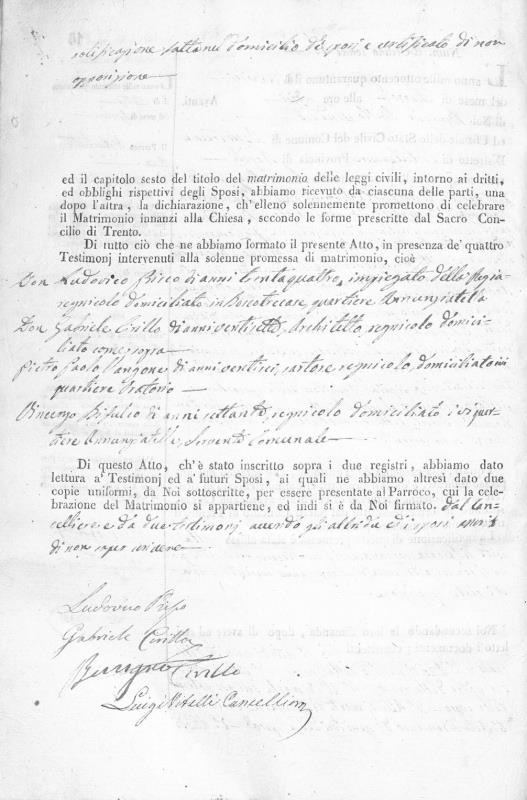 notificazione fattane domicilio de sposi e certificato di non
opposizione
ed il capitolo sesto del titolo del matrimonio delle leggi civili, intorno ai dritti,
ed obblighi rispettivi degli Sposi, abbiamo ricevuto da ciascuna delle parti, una
dopo l'altra, la dichiarazione, ch'elleno solennemente promettono di celebrare
il Matrimonio innanzi alla Chiesa, secondo le forme prescritte dal Sacro Con-
cilio di Trento.
Di tutto ciò che ne abbiamo formato il presente Atto, in presenza de' quattro
Testimonj intervenuti alla solenne promessa di matrimonio, cioè
Don Ludovico di anni trenta quattro, impiegato della Regia
regnicolo domiciliato in Boscotrecase quartiere Annunziatella
Don Gabriele Cirillo di anni ventisette, Architetto, regnicolo domici-
liato come sopra
Pietro Paolo Vangone di anni ventisei, sartore regnicolo, domiciliato in
quartiere Oratorio
Vincenzo Bifulco di anni settanta, regnicolo domiciliato ivi quar-
tiere Annunziatella, Serviente Comunale
Di questo Atto, ch'è stato inscritto sopra i due registri, abbiamo dato
lettura a' Testimonj ed a' futuri Sposi, ai quali ne abbiamo altresì dato due
copie uniformi, da Noi sottoscritte, per essere presentate al Parroco, cui la cele-
brazione del Matrimonio si appartiene, ed indi si è da Noi firmato, dal Can-
celliere e da due testimonj avendo gli altri due e i sposi
di non saper scrivere
Ludovico
Gabriele Cirillo
Cirillo
Luigi Vitelli Cancelliere